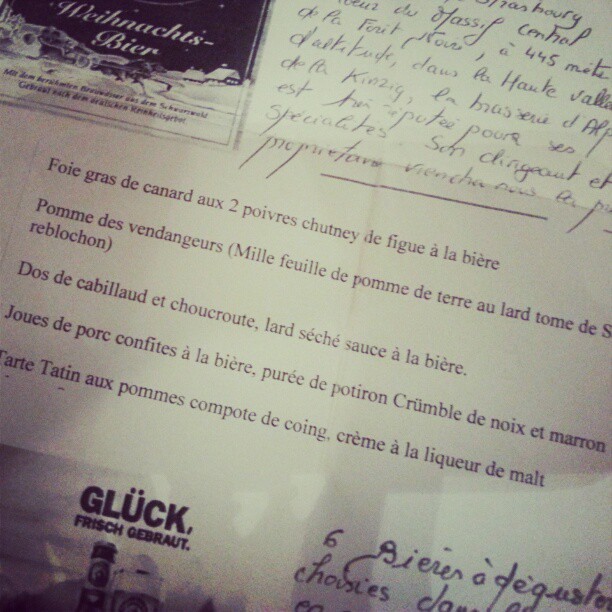 Weihnachts-
Bier
Mit dem berühmten Brauwasser aus dem Schwarzwald
Gebraut nach dem deutschen Reinheitsgebot.
Strasbourg
du Massif Central
de la Forêt Noire, à 445 mètre
d'altitude, dans la Haute vallé
de la Kinzig, la brasserie d'Alp
est très réputée pour ses
Spécialités. Son dirigeant et
propriétaire viendra nous la
Foie gras de canard aux 2 poivres chutney de figue à la bière
Pomme des vendangeurs (Mille feuille de pomme de terre au lard tome de S
reblochon)
Dos de cabillaud et choucroute, lard séché sauce à la bière.
Joues de porc confites à la bière, purée de potiron Crümble de noix et marron
Tarte Tatin aux pommes compote de coing, crème à la liqueur de malt
GLÜCK,
FRISCH GEBRAUT.
6 Bières à déguster
choisies dans